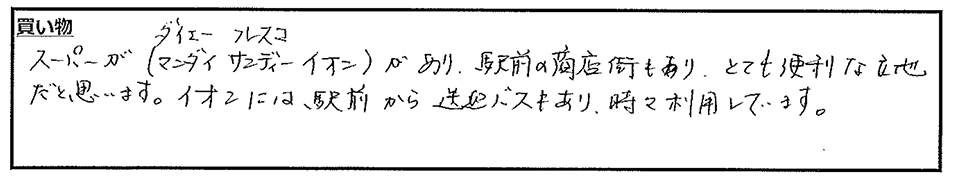 買い物
ダイエー フレスコ
スーパーが (マンダイ サンディー イオン) があり、駅前の商店街もあり、とても便利な立地
だと思います。イオンには駅前から送迎バスもあり、時々利用しています。